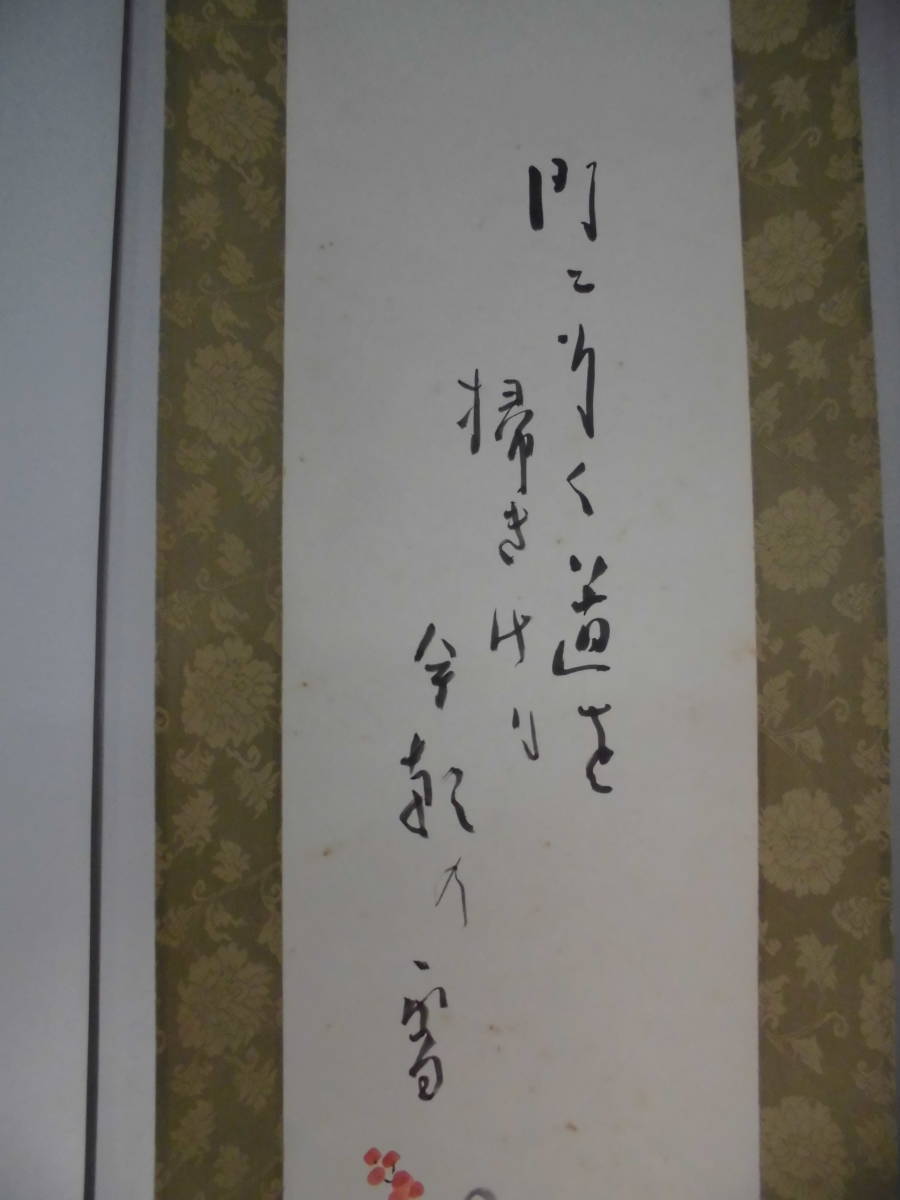 門に行く道を
掃きけり
今朝の雪